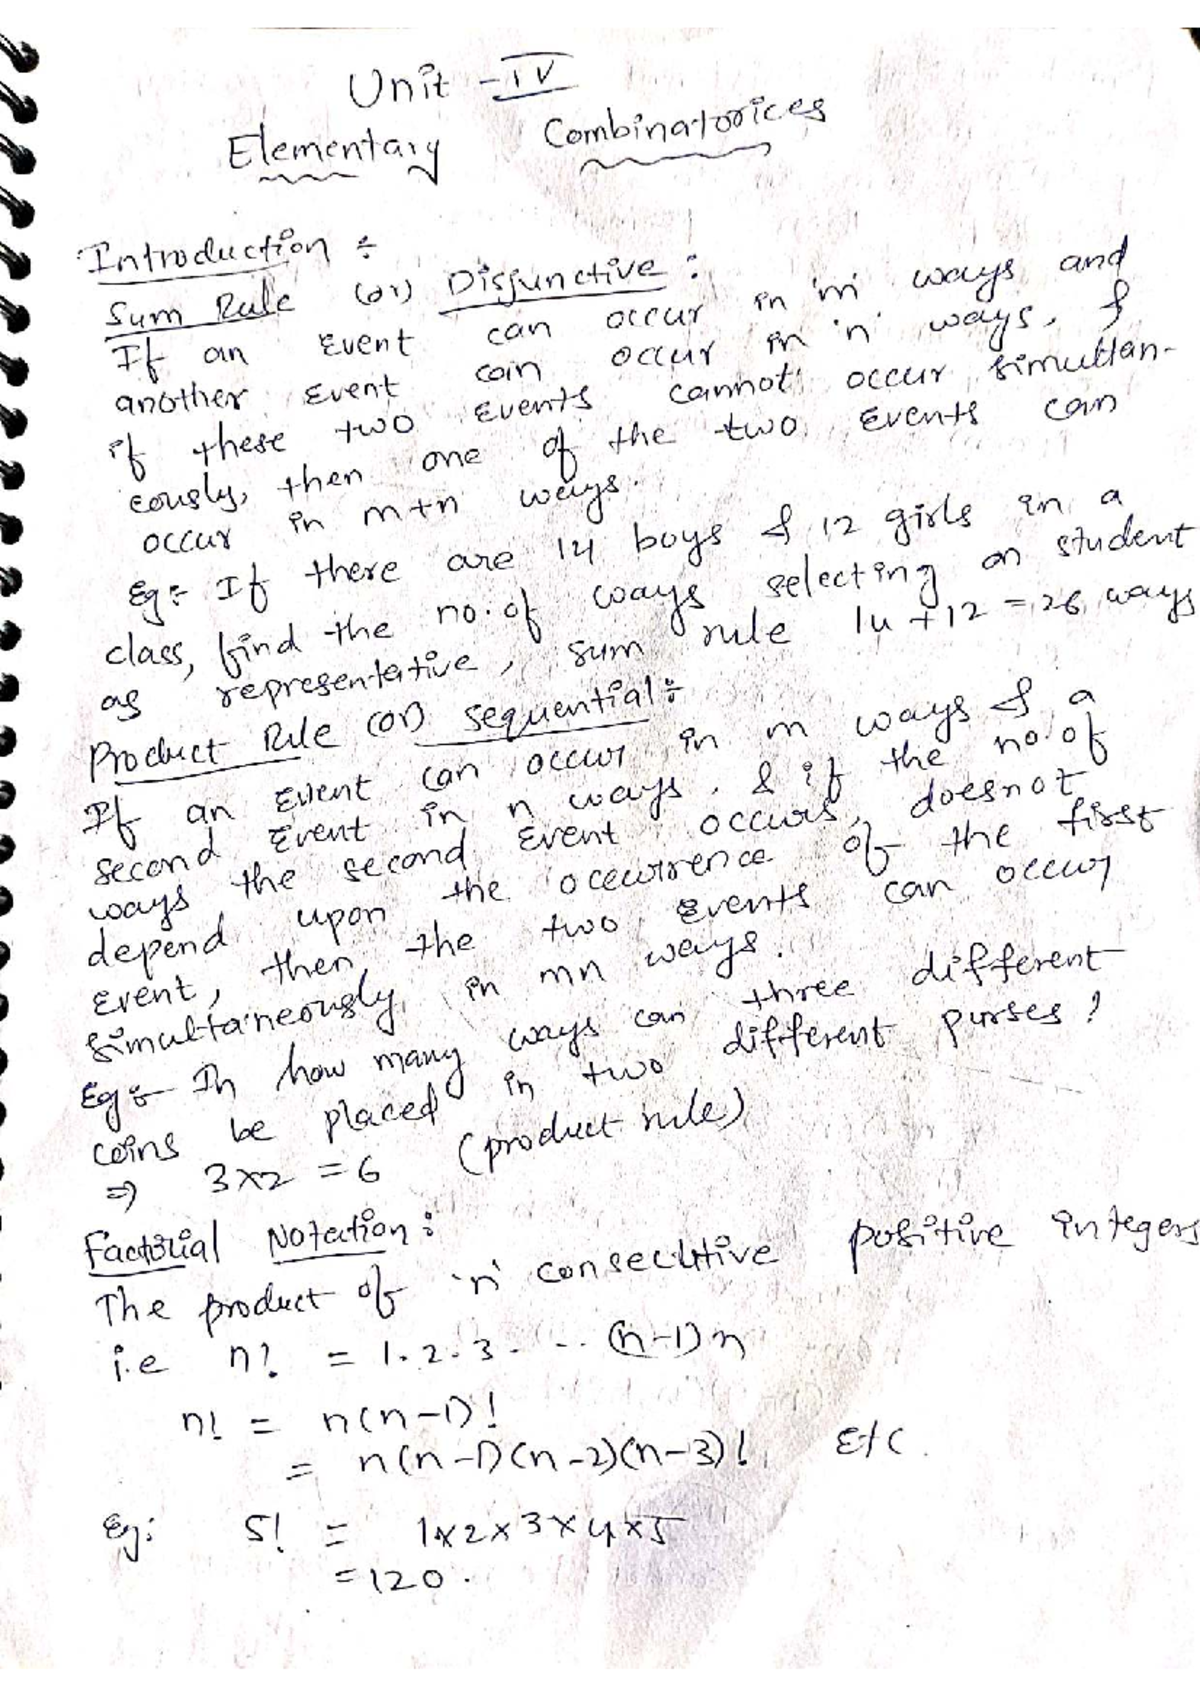 Unit - IV
Elementary Combinatorices
Introduction :
Sum Rule (or) Disjunctive :
If an Event can occur in 'm' ways and
another Event can occur in 'n' ways, &
if these two Events cannot occur simultan-
eously, then one of the two Events can
occur in m+n ways.
Eg:- If there are 14 boys & 12 girls in a
class, find the no. of ways selecting an student
as representative, sum rule 14 + 12 = 26 ways
Product Rule (or) sequential :
If an Event can occur in m ways & a
second Event in n ways, & if the no. of
ways the second Event occurs, doesnot
depend upon the ocewrrence of the first
Event, then the two Events can occur
simultaneously in mn ways.
Eg:- In how many ways can three different
coins be placed in two different purses?
⇒ 3×2 = 6 (product rule)
Factorial Notation :
The product of 'n' consecutive positive integers
i.e n! = 1.2.3. ... (n-1) n
n! = n(n-1)!
= n(n-1)(n-2)(n-3)! Etc.
Eg: 5! = 1×2×3×4×5
= 120.